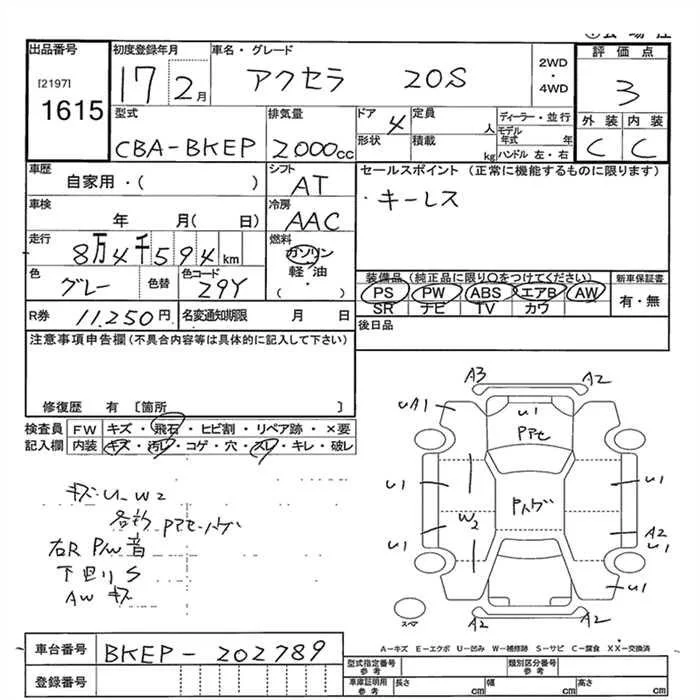 出品番号 初度登録年月 車名・グレード 評価点
[2197] 1615 17 2月 アクセラ 20S 2WD・4WD 3
型式 排気量 ドア 4 定員 人 ディーラー・並行 外装 内装
CBA-BKEP 2000cc 形状 積載 kg モデル年式 年 ハンドル 左・右 C C
車歴 シフト セールスポイント (正常に機能するものに限ります)
自家用・( ) AT ・キーレス
車検 冷房
年 月( 日) AAC
走行 燃料
8万4千594km ガソリン
色 色替 色コード 軽油 装備品(純正品に限り○をつけてください) 新車保証書
グレー 29Y ・( ) PS PW ABS エアB AW 有・無
SR ナビ TV カワ
R券 11,250円 名変通知期限 月 日 後日品
注意事項申告欄(不具合内容等は具体的に記入して下さい)
修復歴 有 [箇所 ]
検査員 FW キズ・飛石・ヒビ割・リペア跡・×要
記入欄 内装 キズ・汚レ・コゲ・穴・スレ・キレ・破レ
A3 A2
UA1 U1
U1 U1
W2
U1 A2 U1
U1
A2 A2
スペア
キズ・U-W2
右R P/W 音
下回りS
AW キズ
A-キズ E-エクボ U-凹み W-補修跡 S-サビ C-腐食 XX-交換済
車台番号 BKEP-202789 型式指定番号 参考 類別区分番号 参考
登録番号 車庫証明用 参考 長さ cm 幅 cm 高さ cm